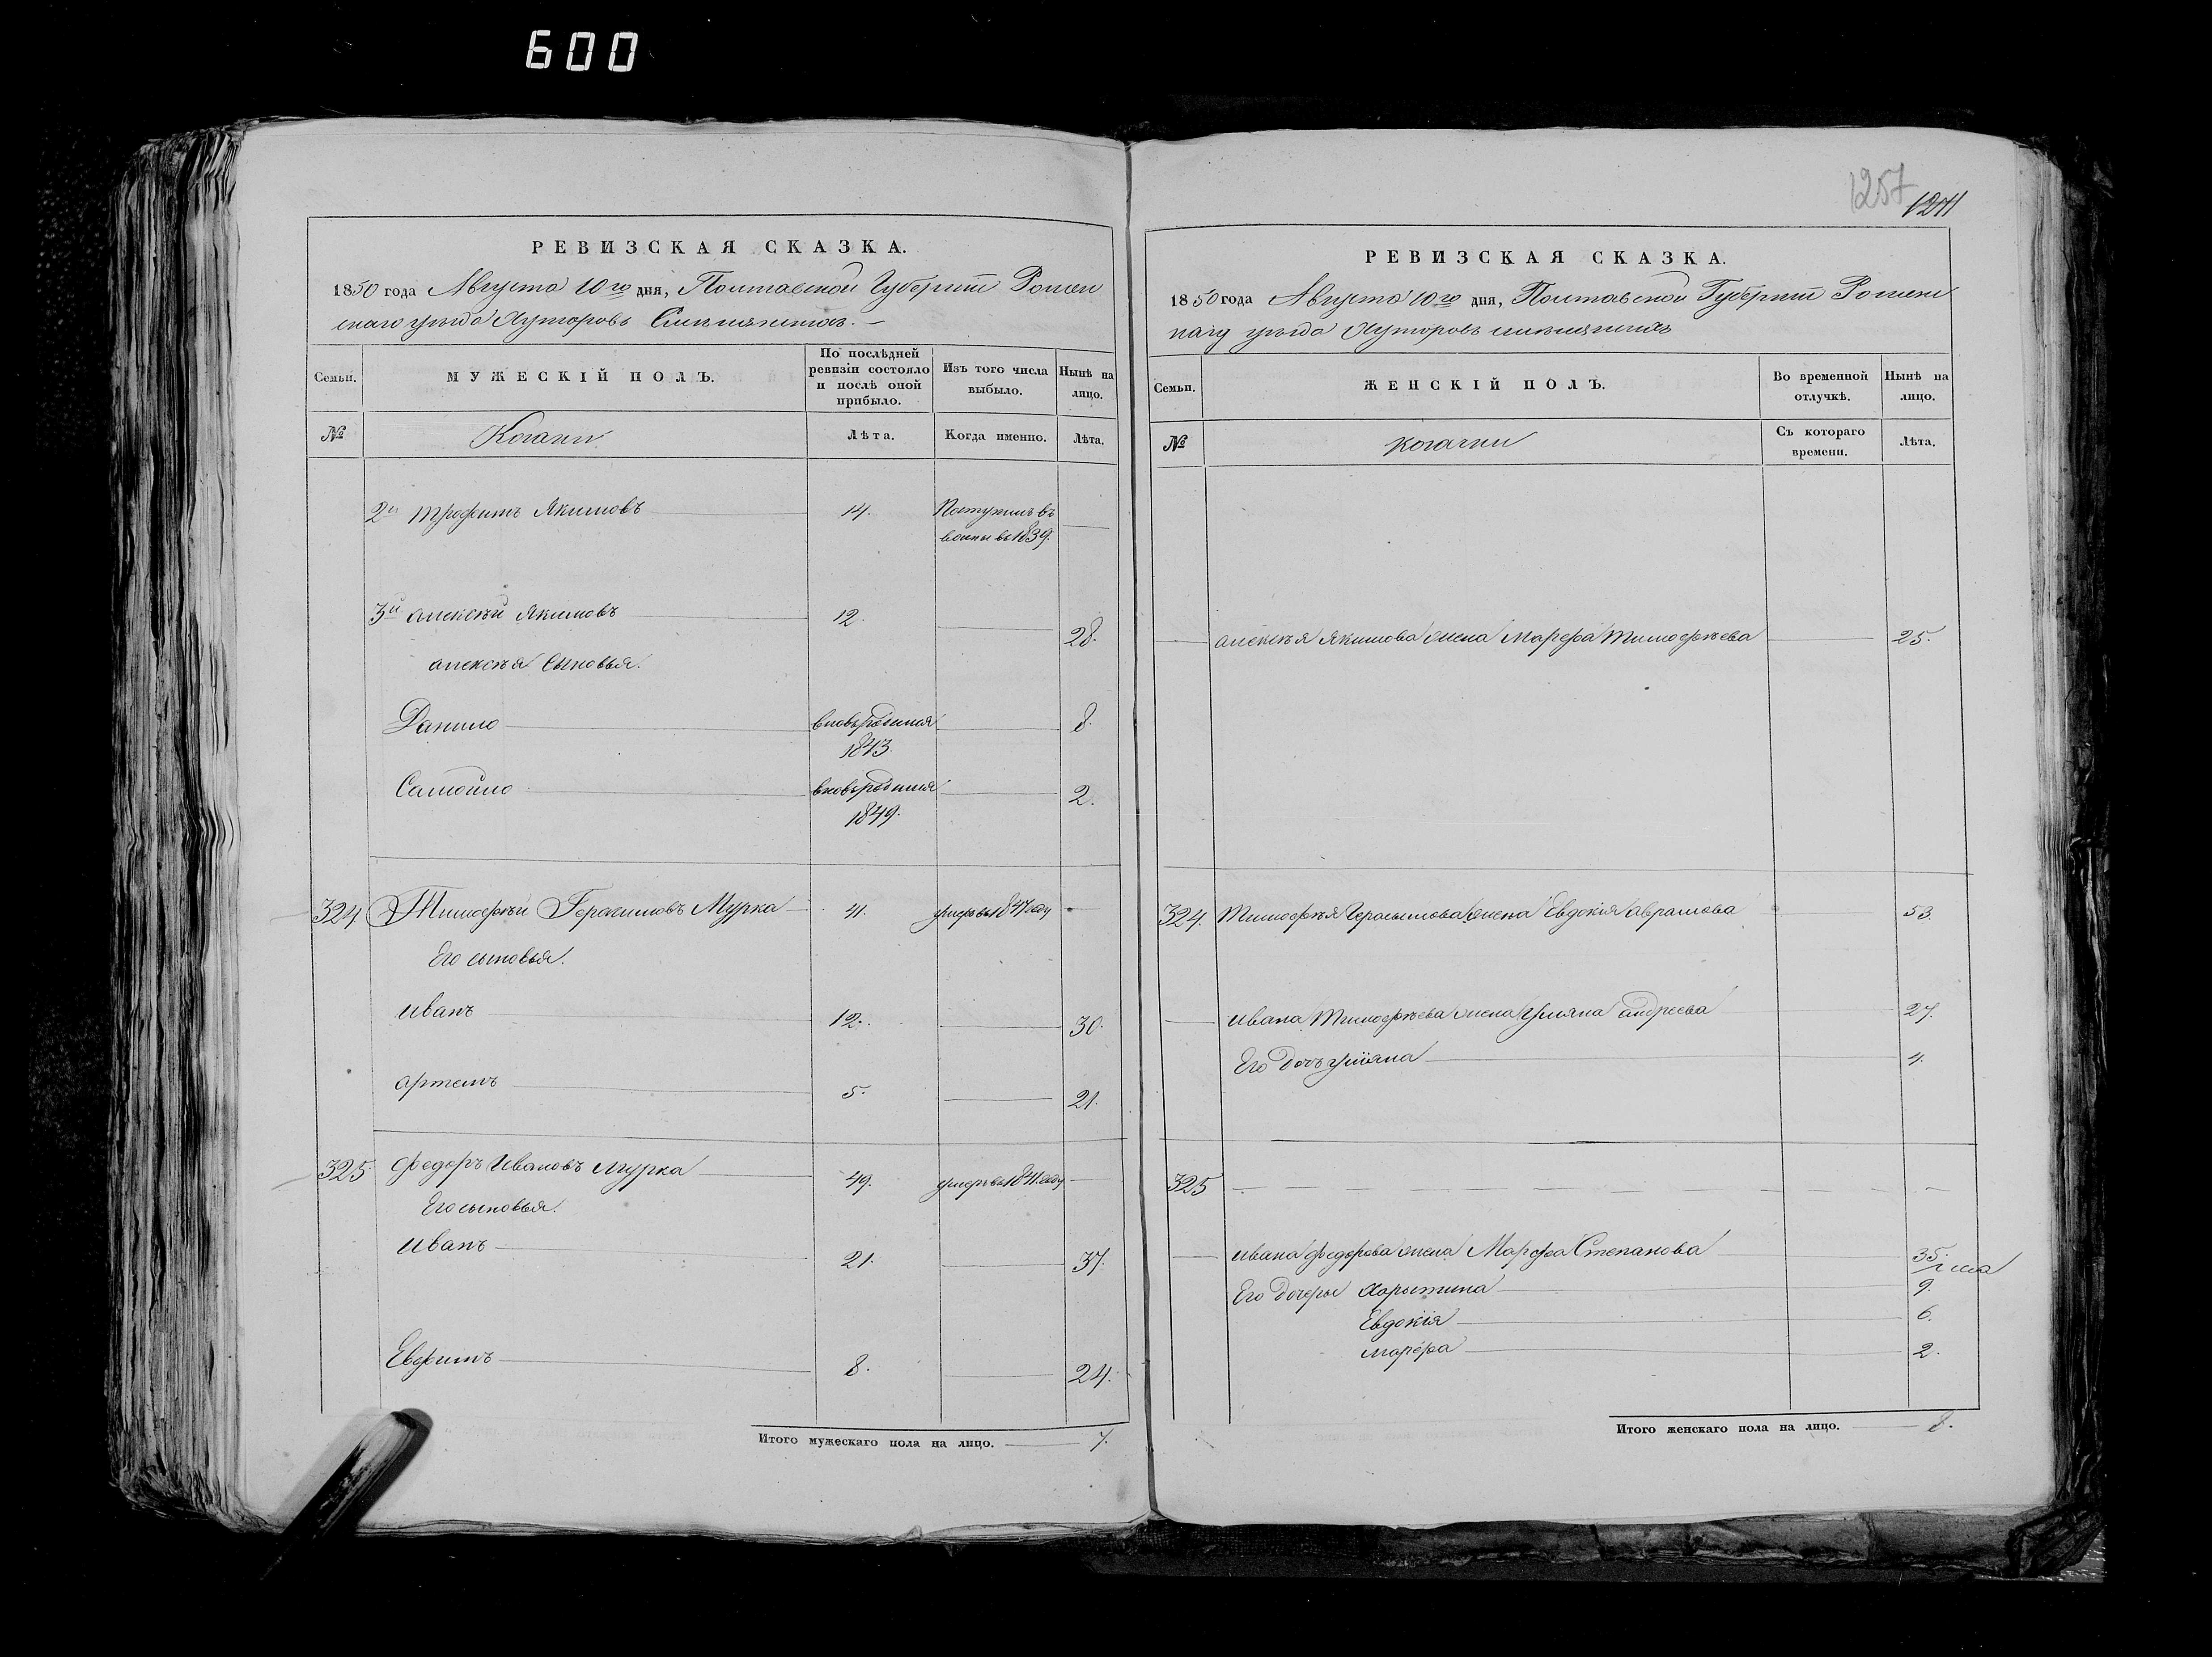 600
1257
1241
РЕВИЗСКАЯ СКАЗКА.
1850 года Августа 10го дня, Полтавской Губерніи Ромен
скаго уѣзда Хуторовъ
Семьи. МУЖЕСКІЙ ПОЛЪ. По послѣдней ревизіи состояло и послѣ оной прибыло. Изъ того числа выбыло. Нынѣ на лицо.
№ Козаки Лѣта. Когда именно. Лѣта.
2й Трофимъ Якимовъ 14. Поступилъ въ
въ 1839.
3й Алексѣй Якимовъ 12. 28.
Алексѣя Сыновья.
Данило вновьрожденъ 8.
1843.
Самойло вновьрожденъ 2.
1849.
324 Тимофѣй Герасимовъ Мурка 41. умеръ въ 1847 году
Его сыновья.
Иванъ 12. 30.
Артемъ 5. 21.
325 Федоръ Ивановъ Мурка 49. умеръ въ 1841 году
Его сыновья.
Иванъ 21. 37.
Евфимъ 8. 24.
Итого мужескаго пола на лицо. 7.
РЕВИЗСКАЯ СКАЗКА.
1850 года Августа 10го дня, Полтавской Губерніи Ромен
уѣзда Хуторовъ
Семьи. ЖЕНСКІЙ ПОЛЪ. Во временной отлучкѣ. Нынѣ на лицо.
№ Козачки Съ котораго времени. Лѣта.
Алексѣя Якимова жена Марфа Тимофѣева 25.
324. Тимофѣя Герасимова жена Евдокія Аврамова 53.
Ивана Тимофѣева жена Уляна Андреева 27.
Его дочь Уліяна 4.
325
Ивана Федорова жена Марфа Степанова 35.
Его дочеры Харытина 9.
Евдокія 6.
Марфа 2.
Итого женскаго пола на лицо. 8.